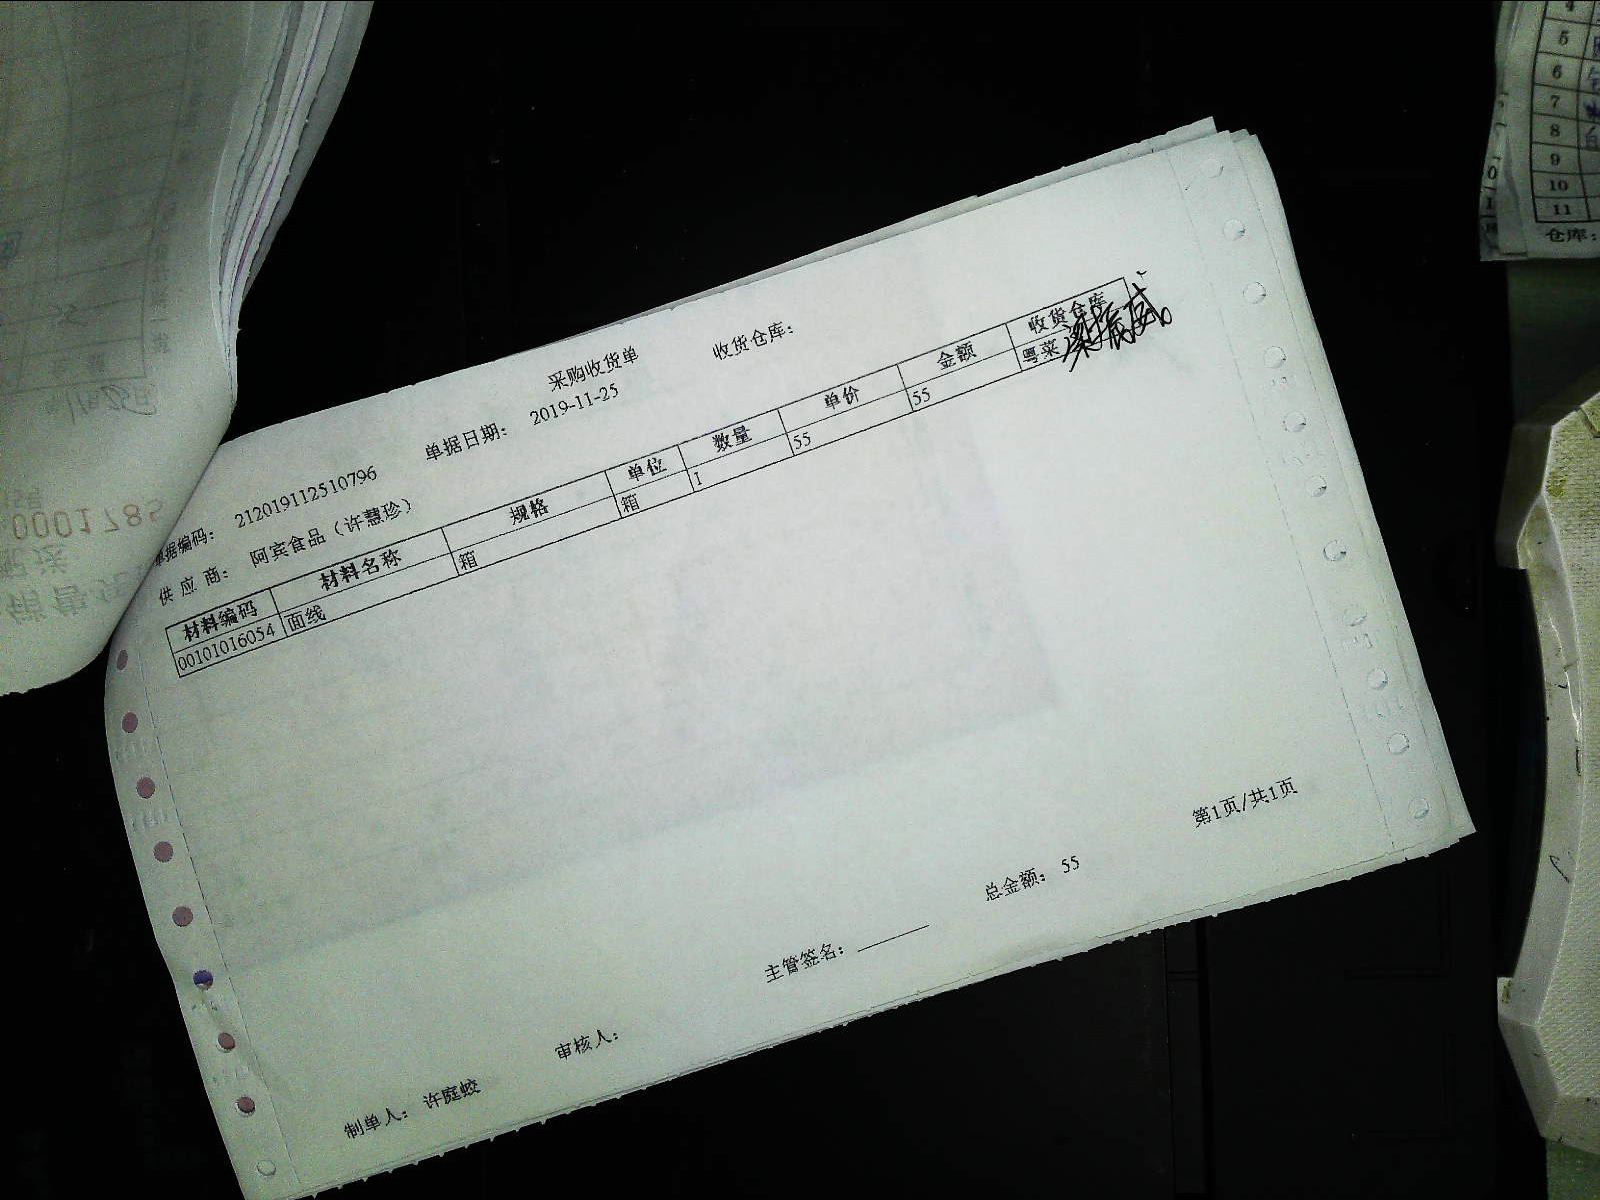 采购收货单
收货仓库：
单据编码： 212019112510796 单据日期： 2019-11-25
供 应 商： 阿宾食品（许慧珍）
材料编码 材料名称 规格 单位 数量 单价 金额 收货仓库
00101016054 面线 箱 箱 1 55 55 粤菜
总金额： 55
第1页/共1页
主管签名：
审核人：
制单人： 许庭蛟
0001785
11月25日
5
6
7
8
9
10
11
仓库：